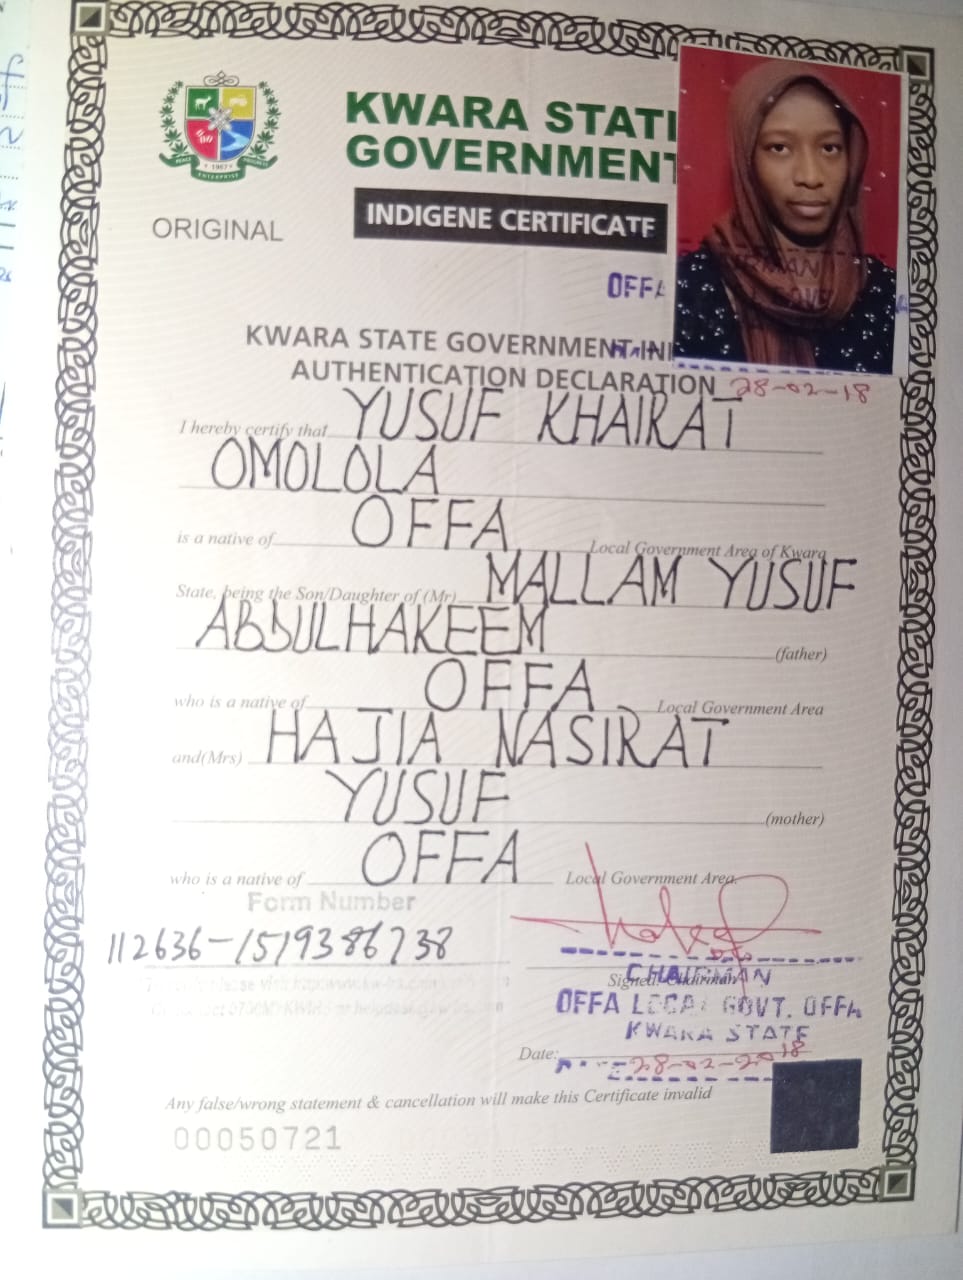 KWARA STATE
GOVERNMENT
INDIGENE CERTIFICATE
PEACE PROGRESS
1967
ENTERPRISE
ORIGINAL
OFFA
KWARA STATE GOVERNMENT IN
AUTHENTICATION DECLARATION 28-02-18
I hereby certify that YUSUF KHAIRAT
OMOLOLA
is a native of OFFA Local Government Area of Kwara
State, being the Son/Daughter of (Mr) MALLAM YUSUF
ABDULHAKEEM (father)
who is a native of OFFA Local Government Area
and(Mrs) HAJIA NASIRAT
YUSUF (mother)
who is a native of OFFA Local Government Area.
Form Number
112636-1519386738
Signed: Chairman
CHAIRMAN
OFFA LOCAL GOVT. OFFA
KWARA STATE
Date: 28-02-2018
Any false/wrong statement & cancellation will make this Certificate invalid
00050721